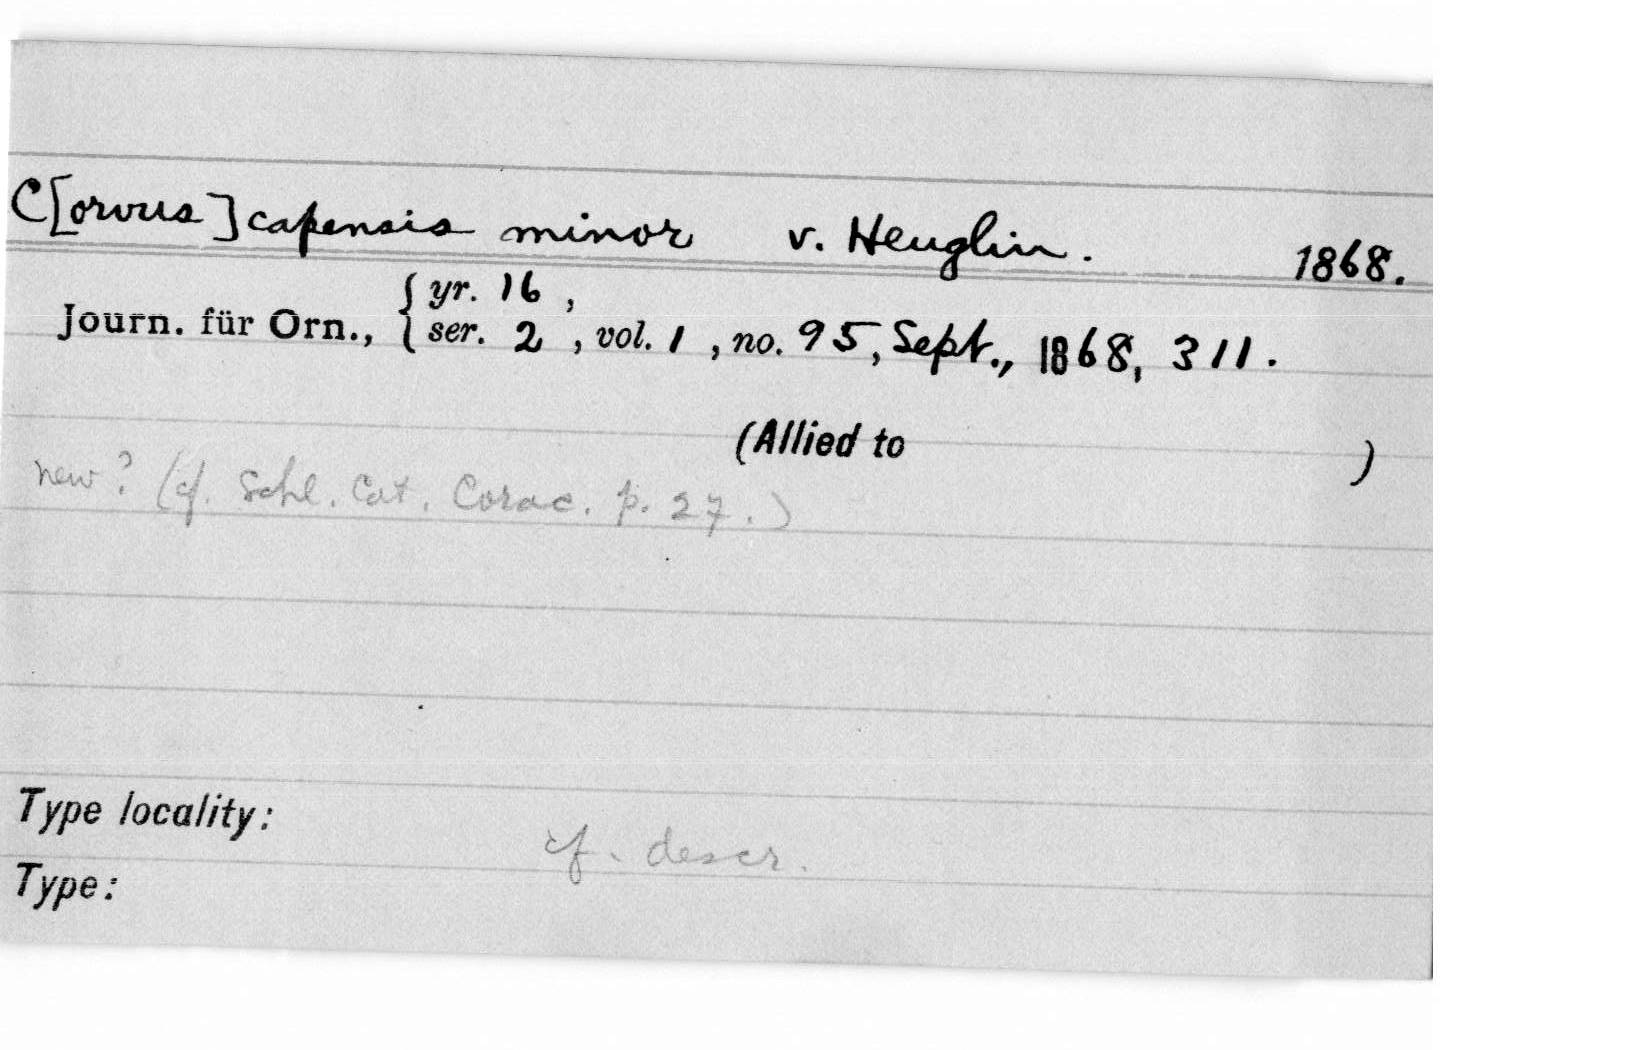 C[orvus] capensis minor v. Heuglin. 1868.
Journ. für Orn., { yr. 16 ,
ser. 2 , vol. 1 , no. 95, Sept., 1868, 311.
(Allied to )
new? (cf. Schl. Cat. Corac. p. 27.)
Type locality:
cf. descr.
Type: